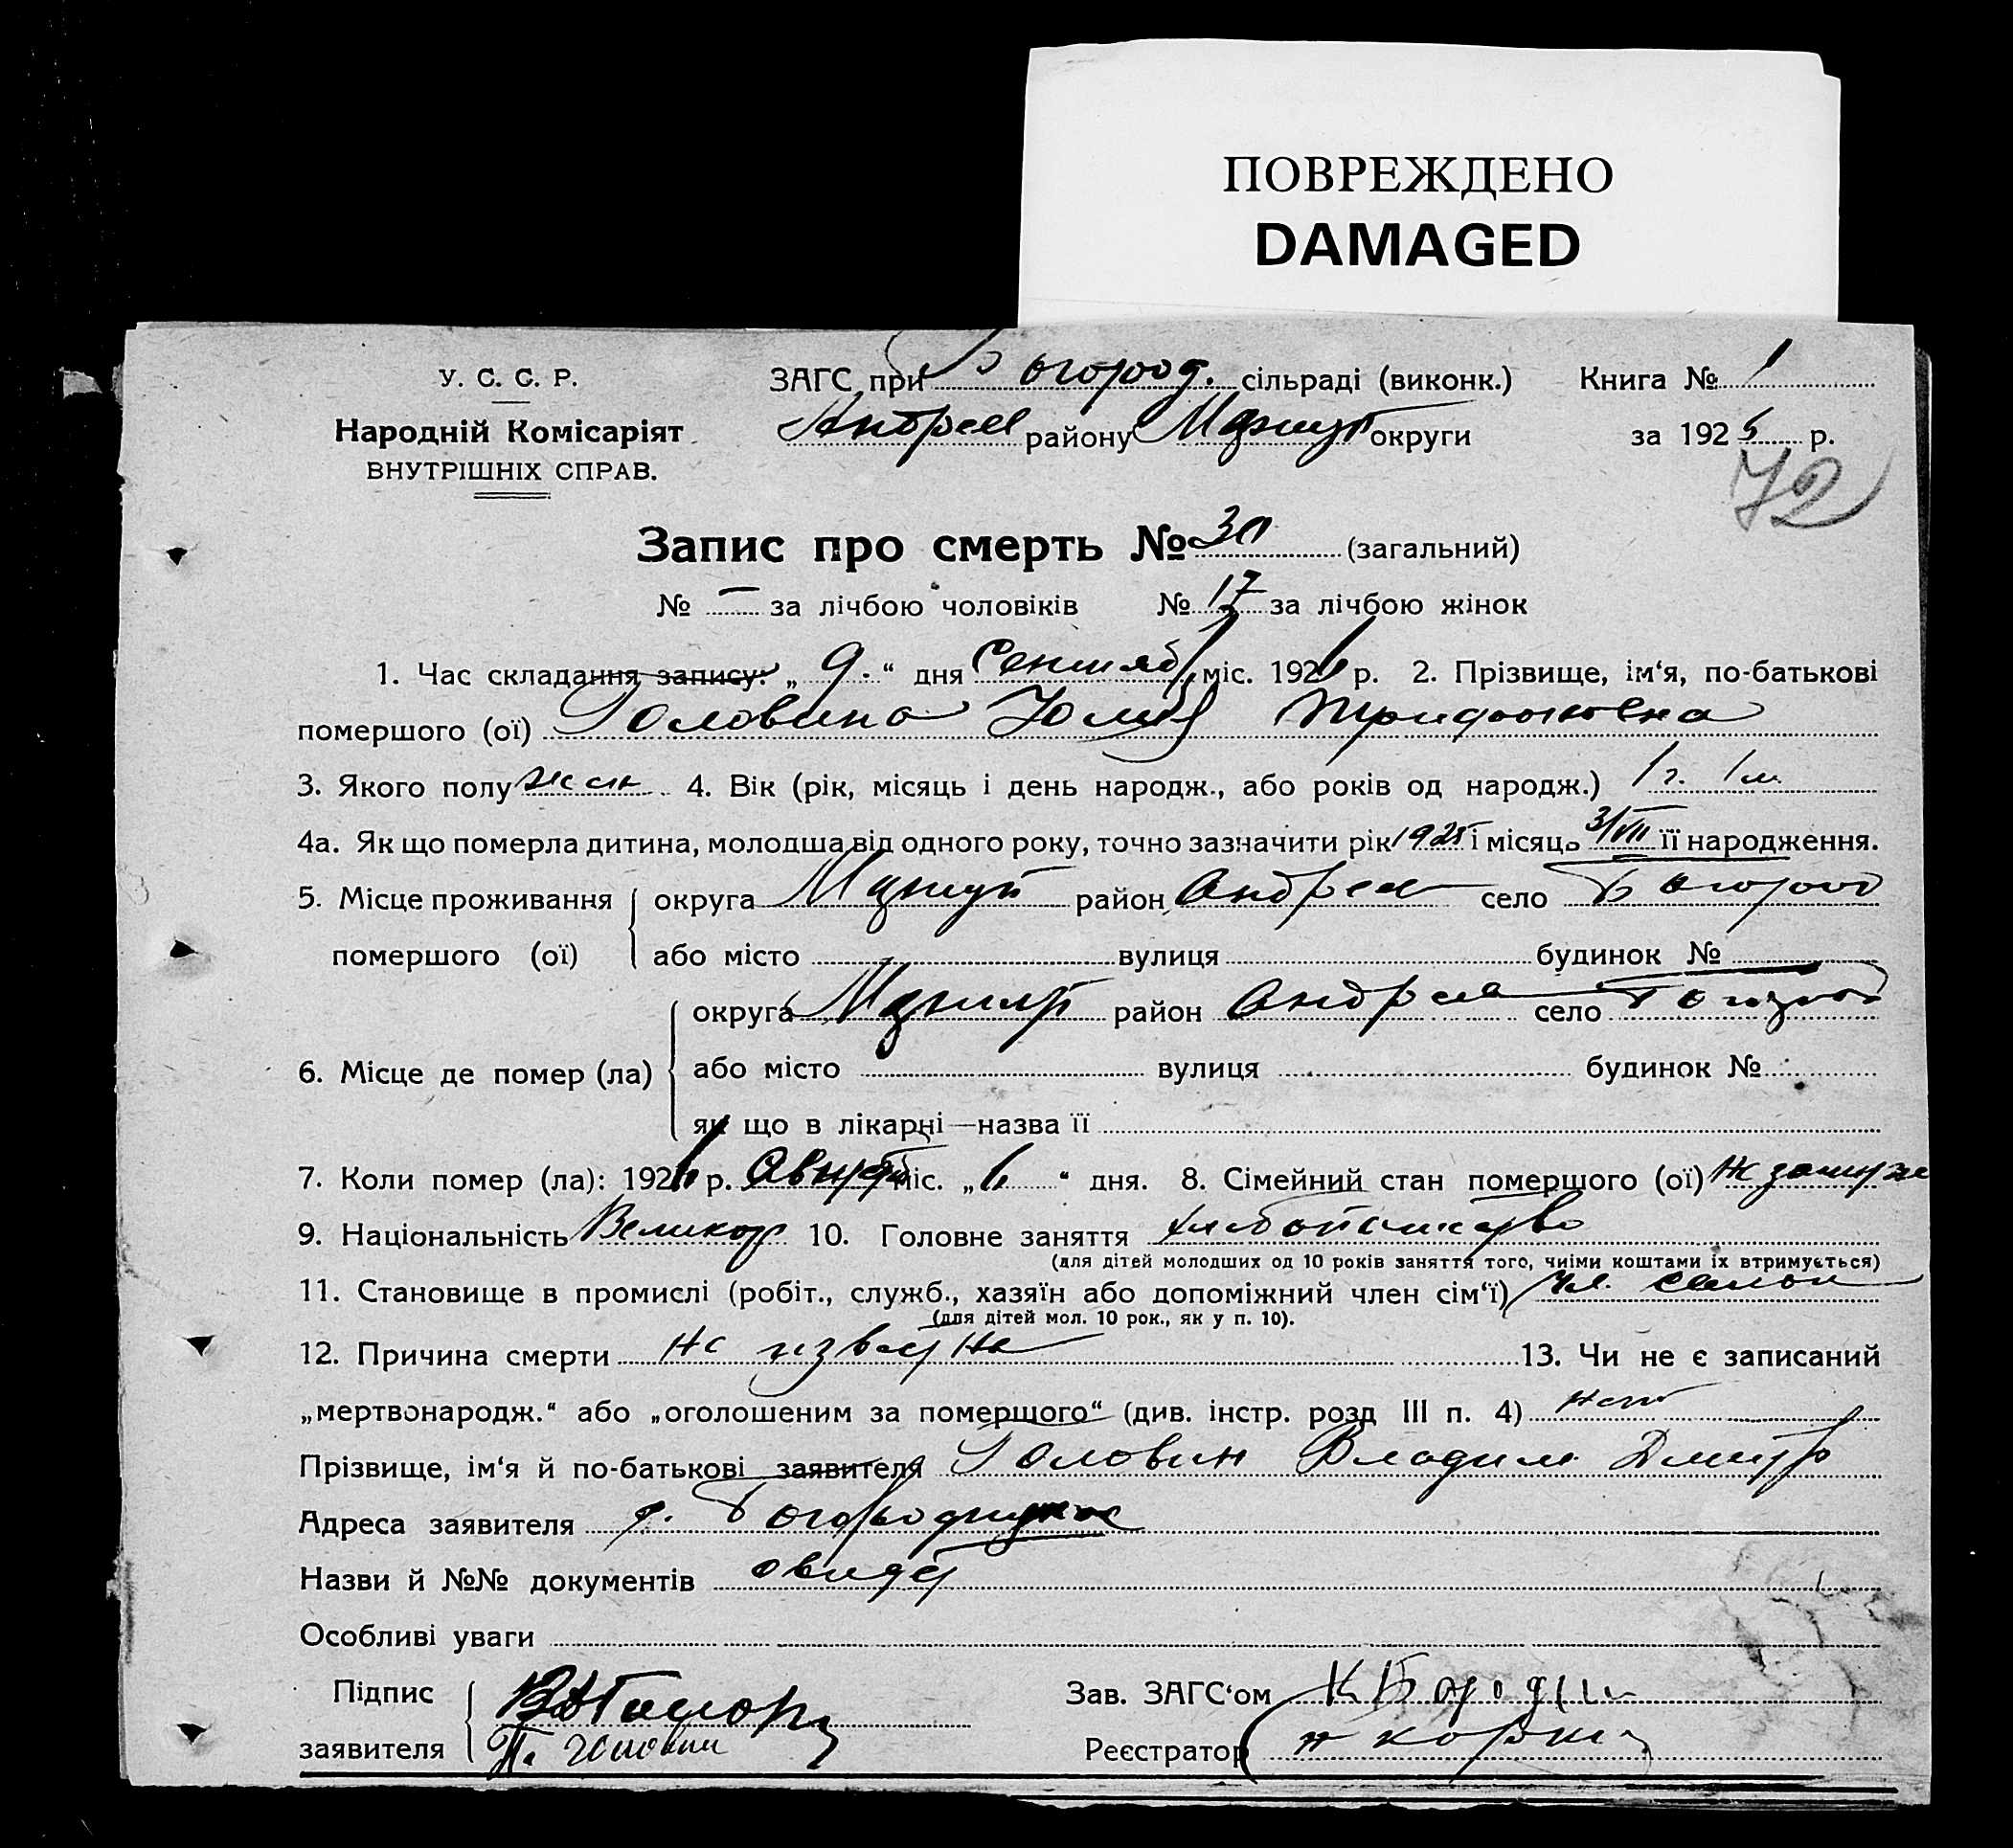 ПОВРЕЖДЕНО
DAMAGED
У. С. С. Р.
Народній Комісаріят
ВНУТРІШНІХ СПРАВ.
ЗАГС при Богород. сільраді (виконк.) Книга № 1
Андреев району округи за 1925 р.
72
Запис про смерть № 30 (загальний)
№ — за лічбою чоловіків № 17 за лічбою жінок
1. Час складання запису: „ 9 “ дня Сентяб міс. 1926 р. 2. Прізвище, ім‘я, по-батькові
помершого (ої) Головина Юлия Трифоновна
3. Якого полу жен 4. Вік (рік, місяць і день народж., або років од народж.) 1 г. 1 м.
4а. Як що померла дитина, молодша від одного року, точно зазначити рік 1925 і місяць 3/VII її народження.
5. Місце проживання округа район Андреев село Богород
помершого (ої) або місто вулиця будинок №
округа район Андреев село
6. Місце де помер (ла) або місто вулиця будинок №
як що в лікарні—назва її
7. Коли помер (ла): 1926 р. Август міс. „ 6 “ дня. 8. Сімейний стан помершого (ої) Не замуж
9. Національність Великор 10. Головне заняття хлебопашество
(для дітей молодших од 10 років заняття того, чиіми коштами їх втримується)
11. Становище в промислі (робіт., служб., хазяїн або допоміжний член сім‘ї) чл. семьи
(для дітей мол. 10 рок., як у п. 10).
12. Причина смерти не известна 13. Чи не є записаний
„мертвонародж.“ або „оголошеним за помершого“ (див. інстр. розд III п. 4) нет
Прізвище, ім‘я й по-батькові заявителя Головин Владим Дмитр
Адреса заявителя
Назви й №№ документів
Особливі уваги
Підпис Зав. ЗАГС‘ом К Бородин
заявителя Головин Реєстратор